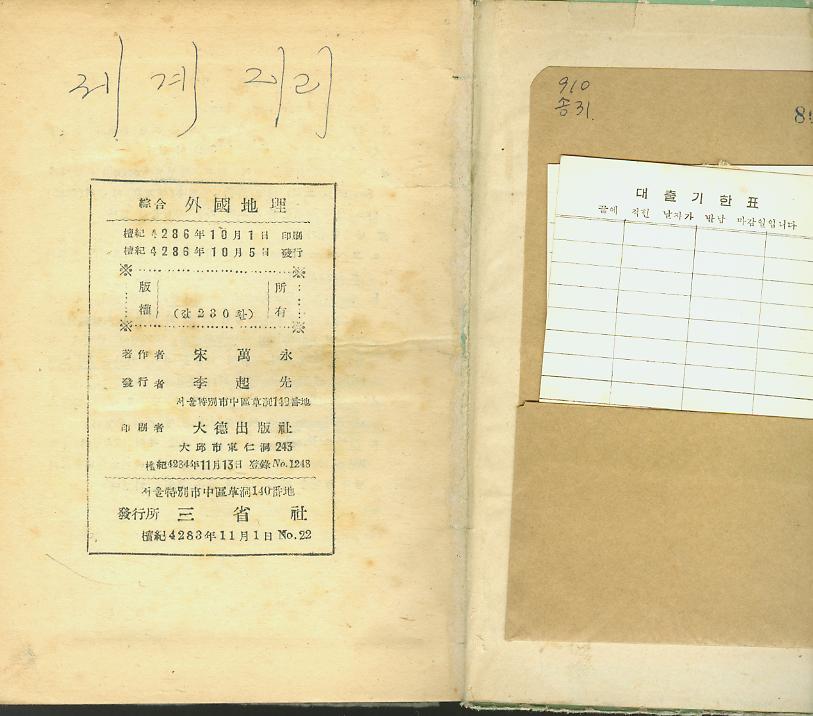 세계 지리
綜合 外國地理
檀紀 4286年 10月 1日 印刷
檀紀 4286年 10月 5日 發行
版權 (값 230환) 所有
著作者 宋萬永
發行者 李超先
서울特別市中區草洞140番地
印刷者 大德出版社
大邱市東仁洞 243
檀紀4284年11月13日 登錄 No.1248
서울特別市中區草洞140番地
發行所 三省社
檀紀 4283年 11月 1日 No.22
910
송31.
대출기한표
끝에 적힌 날자가 반납 마감일입니다